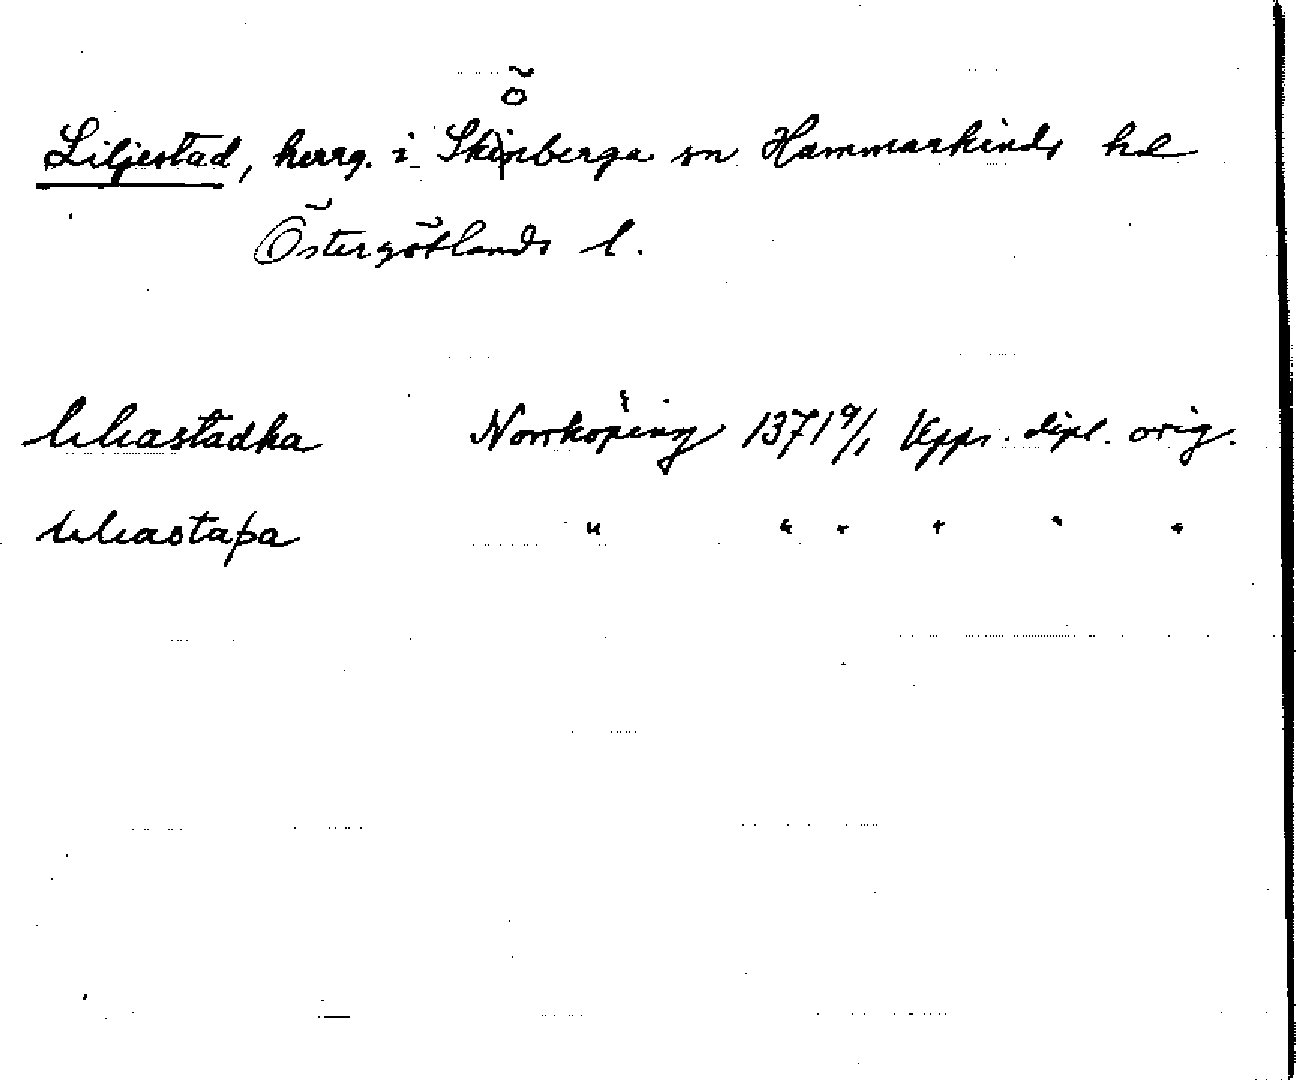 Liljestad, herrg. i Skönberga sn Hammarkinds hd
Östergötlands l.
liliastadha Norrköping 1371 9/1 Upps. dipl. orig.
liliastaþa " " " " " "